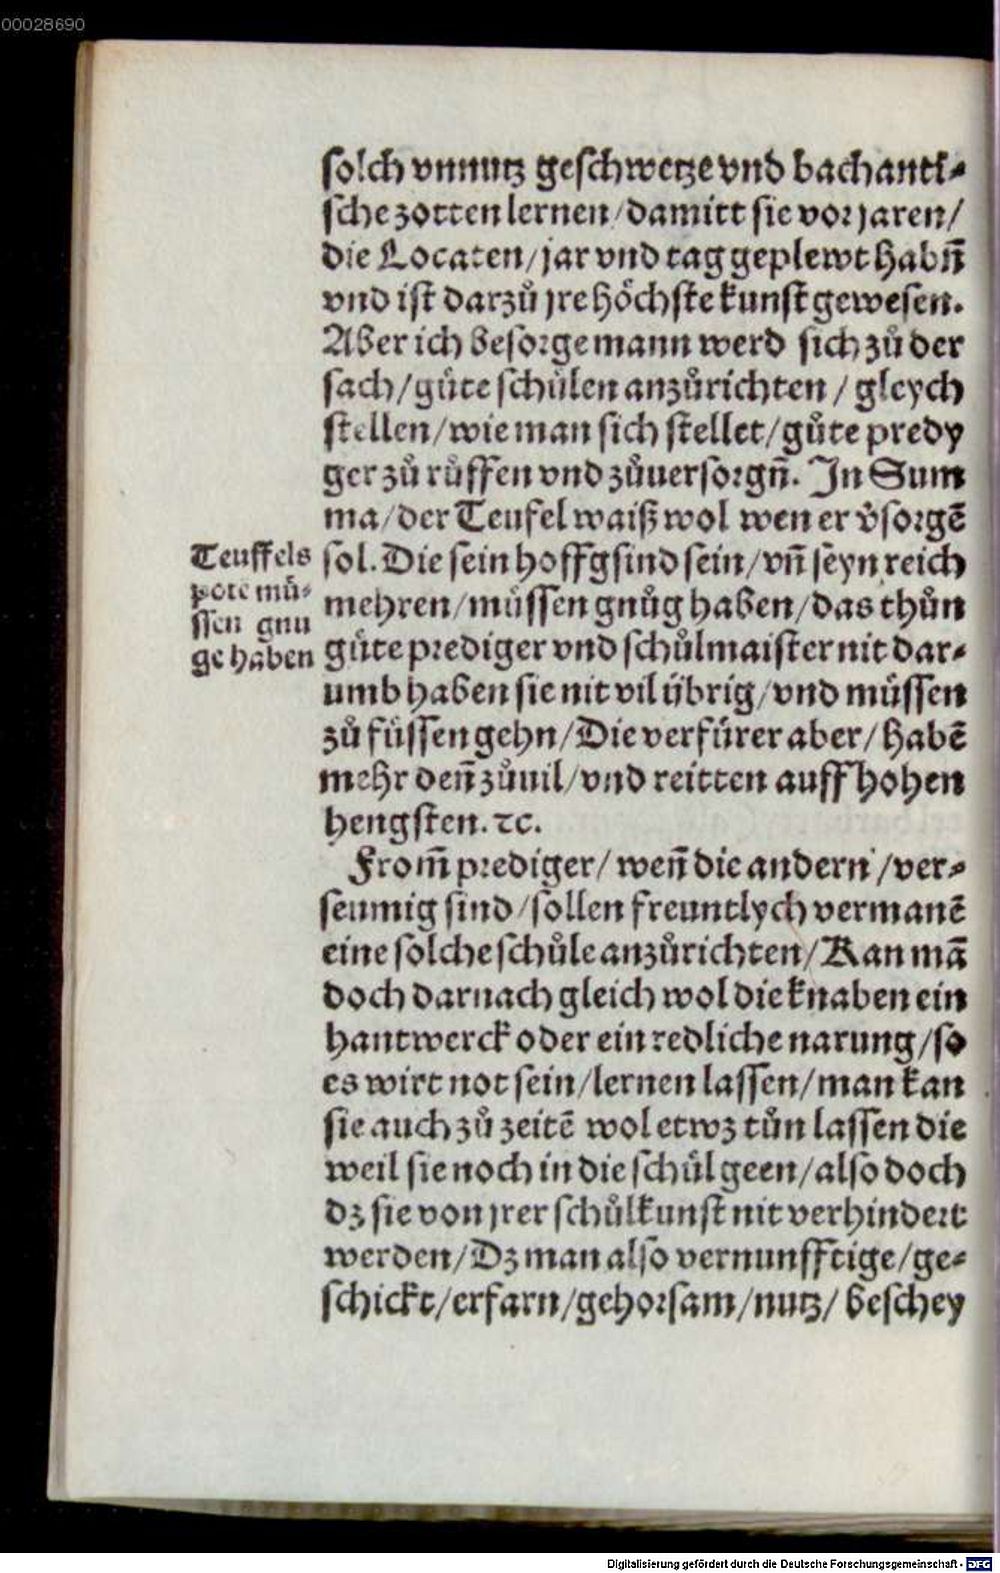 00028690
solch vnnutz geschwetze vnd bachanti⸗
sche zotten lernen/damitt sie vor jaren/
die Locaten/jar vnd tag geplewt habñ
vnd ist darzů jre höchste kunst gewesen.
Aber ich besorge mann werd sich zů der
sach/gůte schůlen anzůrichten / gleych
stellen/wie man sich stellet/gůte predy
ger zů růffen vnd zůuersorgñ. In Sum
ma/der Teufel waiß wol wen er v̊sorgē
sol. Die sein hoffgsind sein/vñ seyn reich
mehren/müssen gnůg haben/das thůn
gůte prediger vnd schůlmaister nit dar⸗
umb haben sie nit vil übrig/vnd müssen
zů füssen gehn/Die verfürer aber/habē
mehr deñ zůuil/vnd reitten auff hohen
hengsten. ⁊c.
Teuffels
pote mü⸗
ssen gnu
ge haben
From̃ prediger/ weñ die andern /ver⸗
seumig sind/sollen freuntlych vermanē
eine solche schůle anzůrichten/Kan mā
doch darnach gleich wol die knaben ein
hantwerck oder ein redliche narung/so
es wirt not sein/lernen lassen/man kan
sie auch zů zeitē wol etwz tůn lassen die
weil sie noch in die schůl geen/also doch
dz sie von jrer schůlkunst nit verhindert
werden/Dz man also vernunfftige/ge⸗
schickt/erfarn/gehorsam/nutz/ beschey
Digitalisierung gefördert durch die Deutsche Forschungsgemeinschaft - DFG